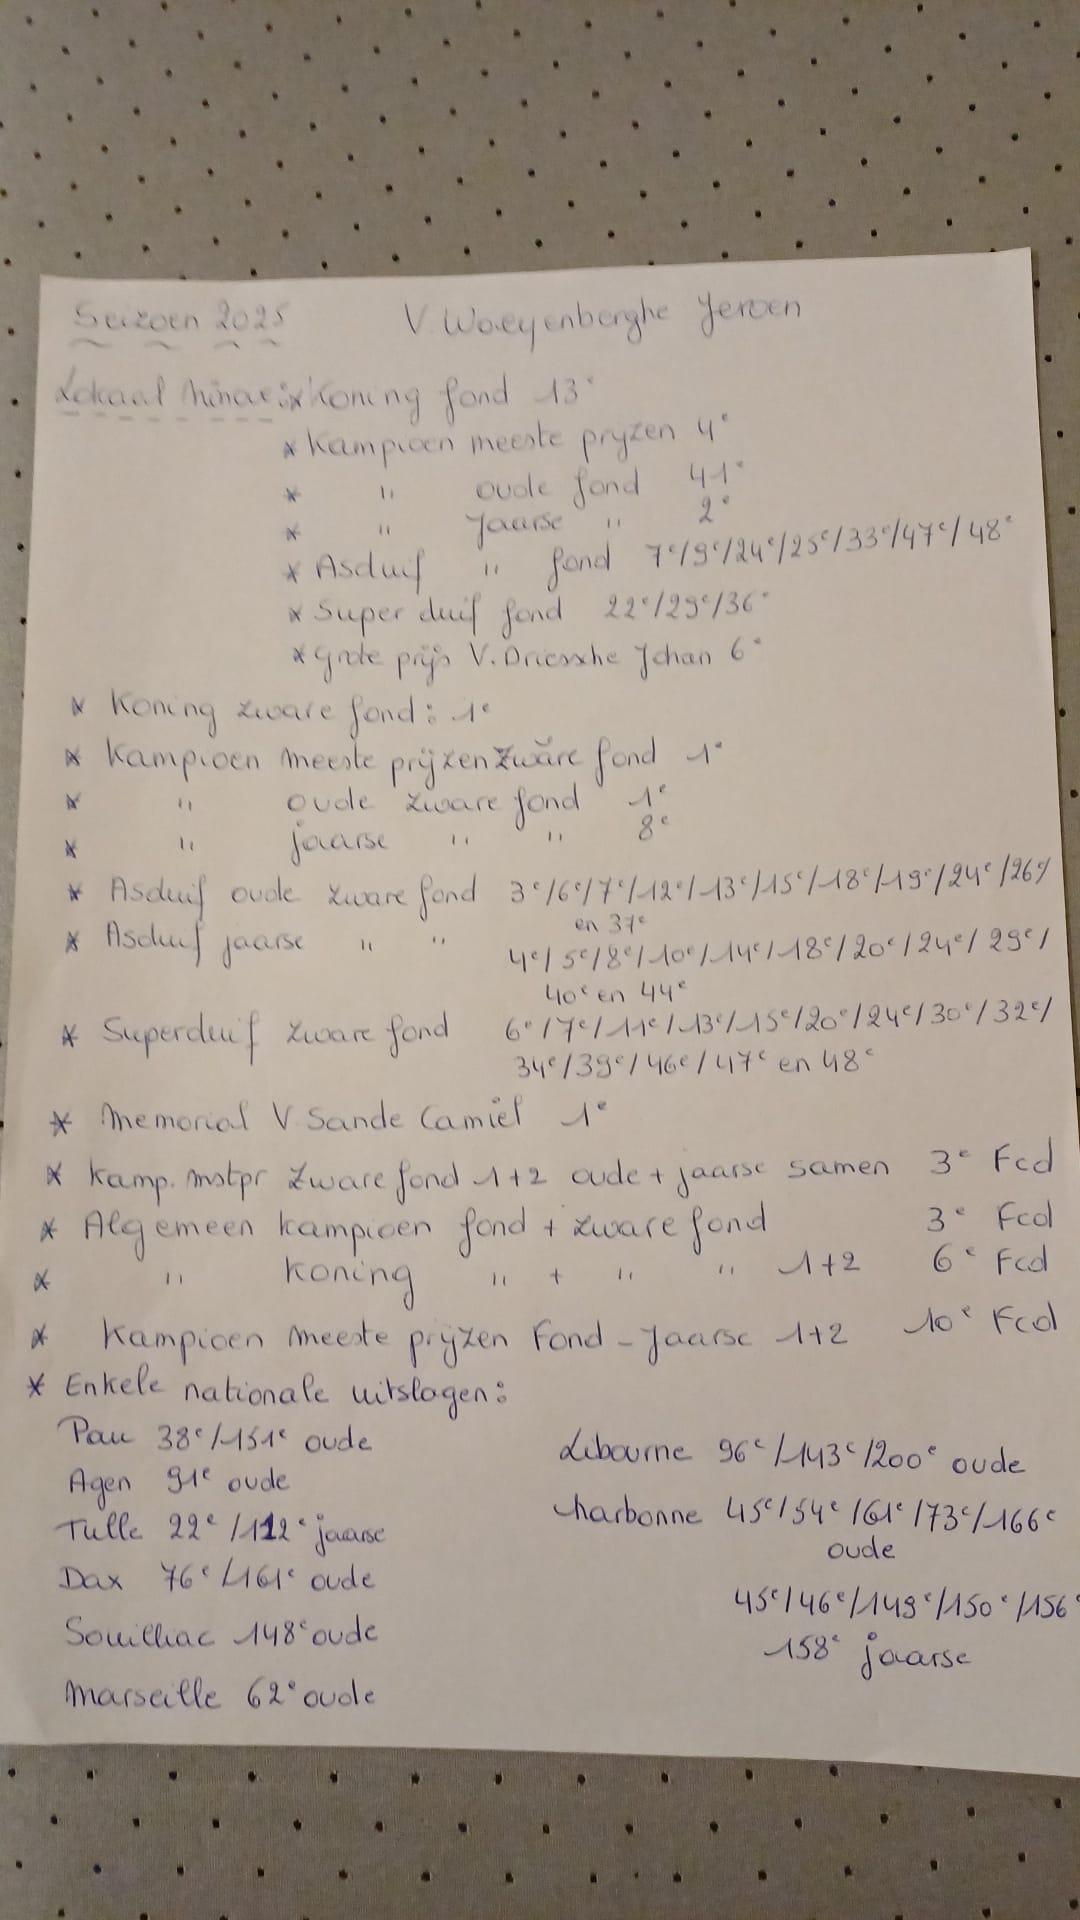 Seizoen 2025 V. Waeyenberghe Jeroen
Lokaal Ninove: * Koning fond 13e
* Kampioen meeste prijzen 4e
* " oude fond 41e
* " Jaarse " 2e
* Asduif " fond 7e/9e/24e/25e/33e/47e/48e
* Super duif fond 22e/29e/36e
* grote prijs V. Driessche Johan 6e
* Koning zware fond: 1e
* Kampioen meeste prijzen zware fond 1e
* " oude zware fond 1e
* " jaarse " " 8e
* Asduif oude zware fond 3e/6e/7e/12e/13e/15e/18e/19e/24e/26e/
en 37e
* Asduif jaarse " " 4e/5e/8e/10e/14e/18e/20e/24e/29e/
40e en 44e
* Superduif zware fond 6e/7e/11e/13e/15e/20e/24e/30e/32e/
34e/39e/46e/47e en 48e
* Memorial V. Sande Camiel 1e
* Kamp. mstpr zware fond 1+2 oude + jaarse samen 3e Fcd
* Algemeen kampioen fond + zware fond 3e Fcd
* " koning " + " " 1+2 6e Fcd
* Kampioen meeste prijzen Fond - Jaarse 1+2 10e Fcd
* Enkele nationale uitslagen:
Pau 38e/151e oude
Agen 91e oude
Tulle 22e/112e jaarse
Dax 76e/161e oude
Souilhac 148e oude
Marseille 62e oude
Libourne 96e/143e/200e oude
Narbonne 45e/54e/61e/73e/166e
oude
45e/46e/149e/150e/156e
158e jaarse